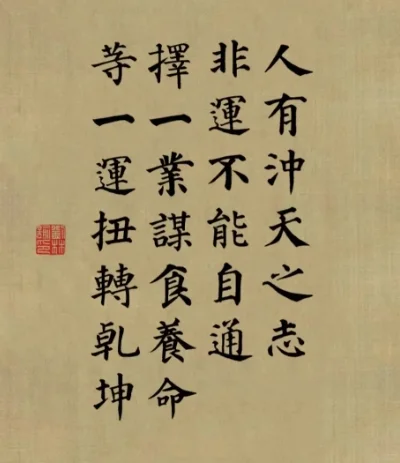 人有沖天之志
非運不能自通
擇一業謀食養命
等一運扭轉乹坤